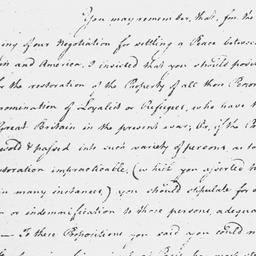 You may remember, that from the
ing of our Negotiation for settling a Peace between
in and America, I insisted that you should provi
for the restoration of the Property of all those Person
nomination of Loyalist or Refugee, who have t
Great Britain in the present war; Or, if the P
sold & passed into such variety of persons, as to
storation impracticable, (which you asserted to
in many instances,) you should stipulate for a
n or indemnification to those persons, adequa
— To these Propositions you said you could n